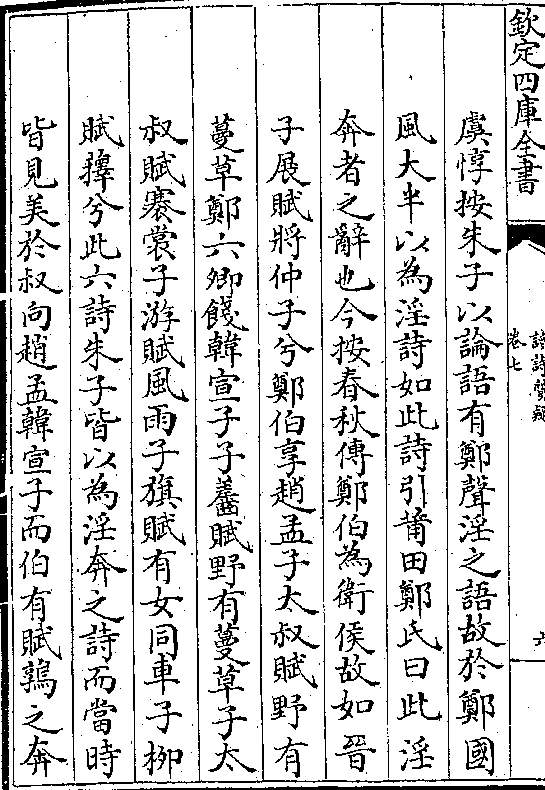 欽定四庫全書
讀詩質疑
卷七
六
虞惇按朱子以論語有鄭聲淫之語故於鄭國
風大半以為淫詩如此詩引莆田鄭氏曰此淫
奔者之辭也今按春秋傳鄭伯為衛侯故如晉
子展賦將仲子兮鄭伯享趙孟子太叔賦野有
蔓草鄭六卿餞韓宣子子齹賦野有蔓草子太
叔賦褰裳子游賦風雨子旗賦有女同車子柳
賦蘀兮此六詩朱子皆以為淫奔之詩而當時
皆見美於叔向趙孟韓宣子而伯有賦鶉之奔